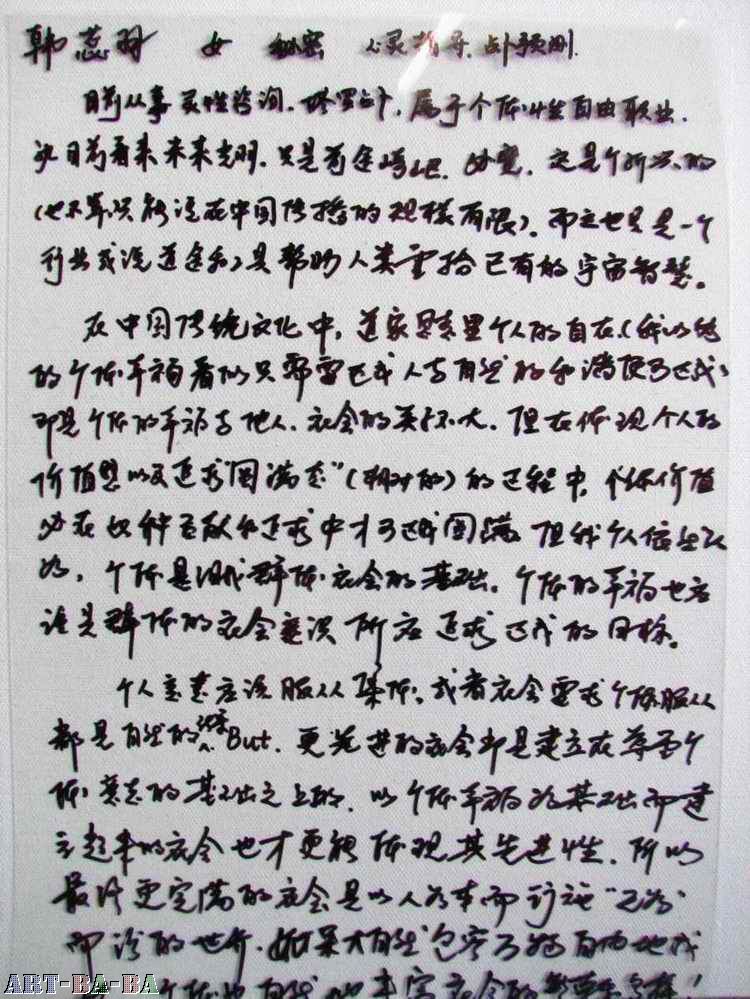 韩蕊 女 秘密 心灵指导、占卜预测.
目前从事灵性咨询、塔罗占卜,属于个体性自由职业.
从目前看来未来光明,只是前途崎岖.必竟,它是个新兴的
(也不算,只能说在中国传播的规模有限),而它也只是一个
行业或说道途和工具帮助人类重拾已有的宇宙智慧。
在中国传统文化中,道家思想里个人的自在(我以为
的个体幸福看似只需要达成人与自然的和谐便可达成,
即是个体的幸福与他人、社会的关系不大.但在体现个人的
价值感以及追求"圆满态"(相对的)的过程中,个体价值
必在如种贡献和追求中才可达成圆满.但我个人依然认
为,个体是组成群体社会的基础,个体的幸福也应
该是群体的社会意识所应追求达成的目标。
个人意志应该服从集体,或者社会要求个体服从
都是自然的 But,更先进的社会却是建立在尊重个
体意志的基础之上的,以个体幸福为基础而建
立起来的社会也才更能体现其先进性.所以
最终更完满的社会是以人为本而行于"无为
而治"的世界.如果大自然包容万物自由地成
个体也自然 丰富社会的
ART-BA-BA